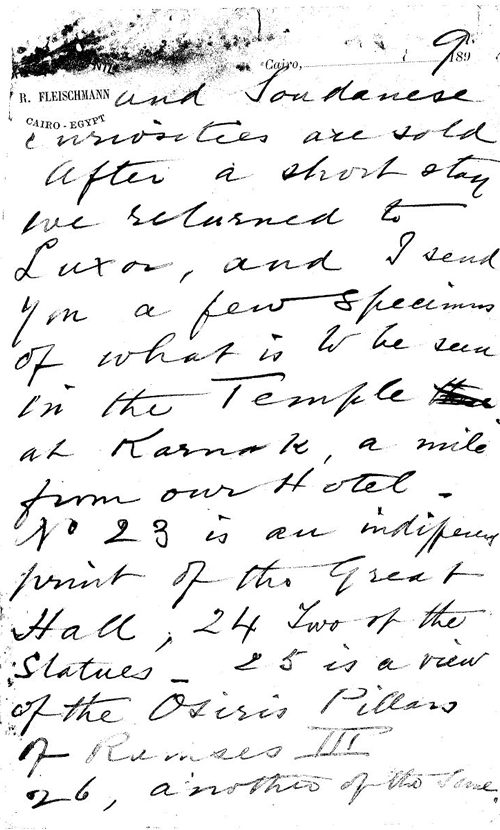 Cairo, 189
9.
R. FLEISCHMANN
CAIRO-EGYPT
and Soudanese
curiosities are sold
After a short stay
we returned to
Luxor, and I send
you a few specimens
of what is to be seen
in the Temple
at Karnak, a mile
from our Hotel -
No 23 is an indifferent
print of the Great
Hall, 24 Two of the
Statues - 25 is a view
of the Osiris Pillars
of Ramses III
26, another of the same.